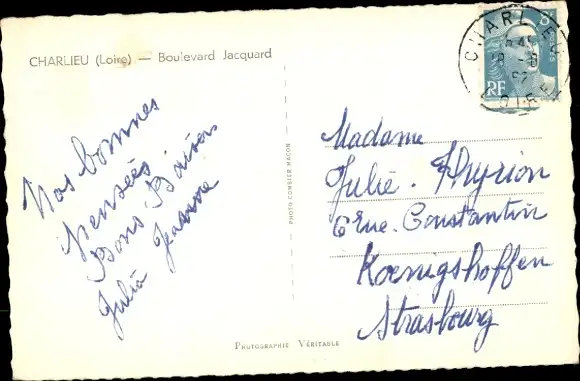 CHARLIEU (Loire) — Boulevard Jacquard
Nos bonnes
pensées
Bons Baisers
Julia Jeanne
PHOTO COMBIER MACON
CHARLIEU
LOIRE
RF
Madame
Julie. Thyrion
6 rue. Constantin
Kœnigshoffen
Strasbourg
PHOTOGRAPHIE VÉRITABLE